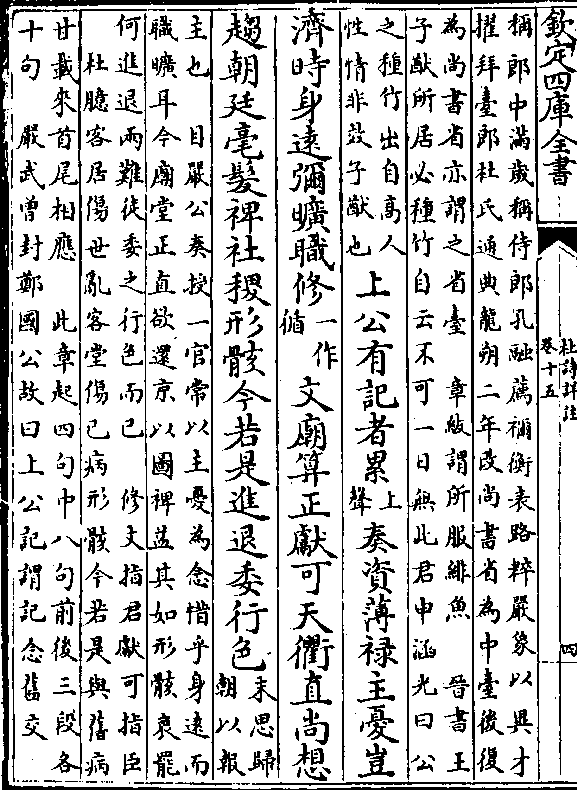 欽定四庫全書
杜詩詳註
卷十五
四
稱郎中滿歲稱侍郎孔融薦禰衡表路粹嚴象以異才
擢拜臺郎杜氏通典龍朔二年改尚書省為中臺後復
為尚書省亦謂之省臺　章紱謂所服緋魚　晉書王
子猷所居必種竹自云不可一日無此君申涵光曰公
之種竹出自高人
性情非效子猷也
上公有記者累上聲奏資薄祿主憂豈
濟時身遠彌曠職修一作循文廟算正獻可天衢直尚想
趨朝廷毫髮裨社稷形骸今若是進退委行色
末思歸
朝以報
主也　目嚴公奏授一官常以主憂為念惜乎身遠而
職曠耳今廟堂正直欲還京以圖裨益其如形骸衰罷
何進退兩難徒委之行色而已　修文指君獻可指臣
杜臆客居傷世亂客堂傷己病形骸今若是與舊病
甘載來首尾相應　此章起四句中八句前後三段各
十句　嚴武嘗封鄭國公故曰上公記謂記念舊交